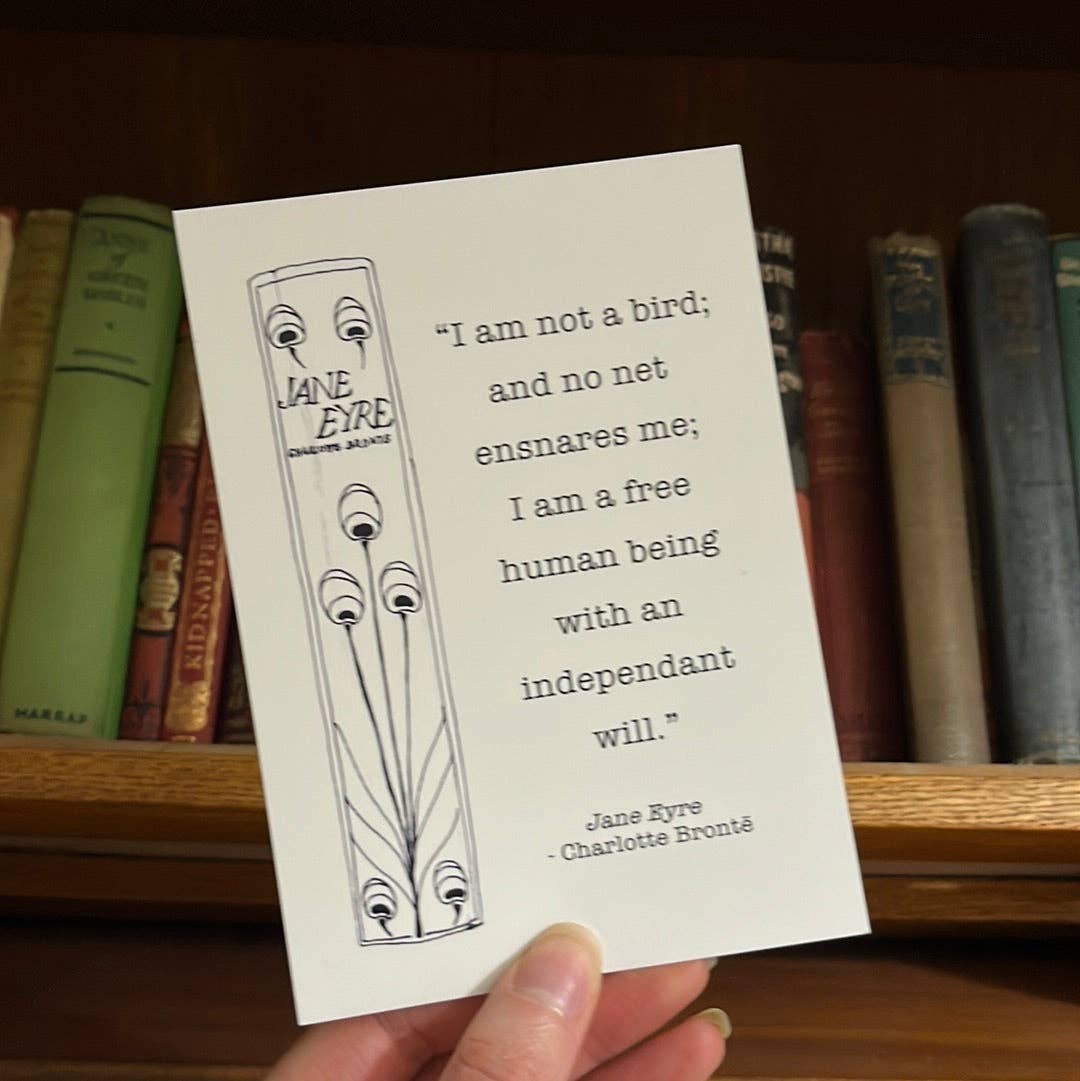 ANNE
of
GREEN
GABLES
HARRAP
KIDNAPPED
JANE
EYRE
CHARLOTTE BRONTE
“I am not a bird;
and no net
ensnares me;
I am a free
human being
with an
independant
will.”
Jane Eyre
- Charlotte Brontë